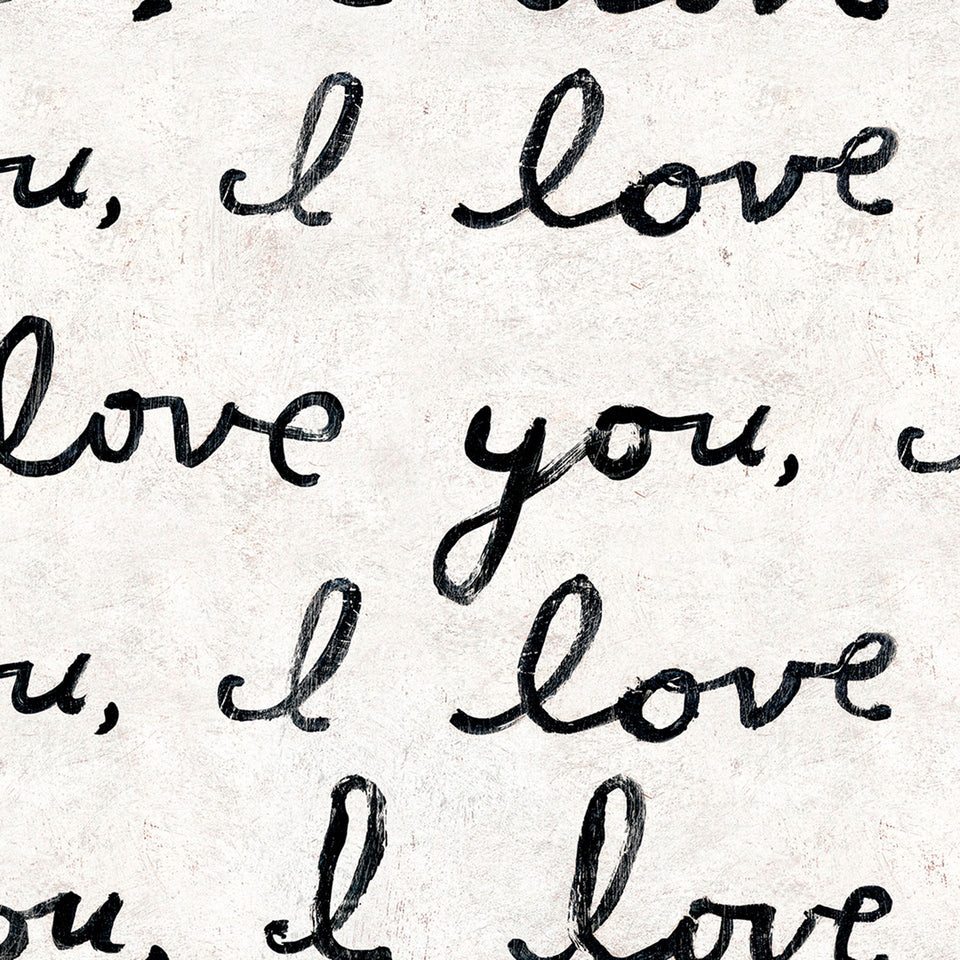 u, I love
love you, I
u, I love
ou, I love